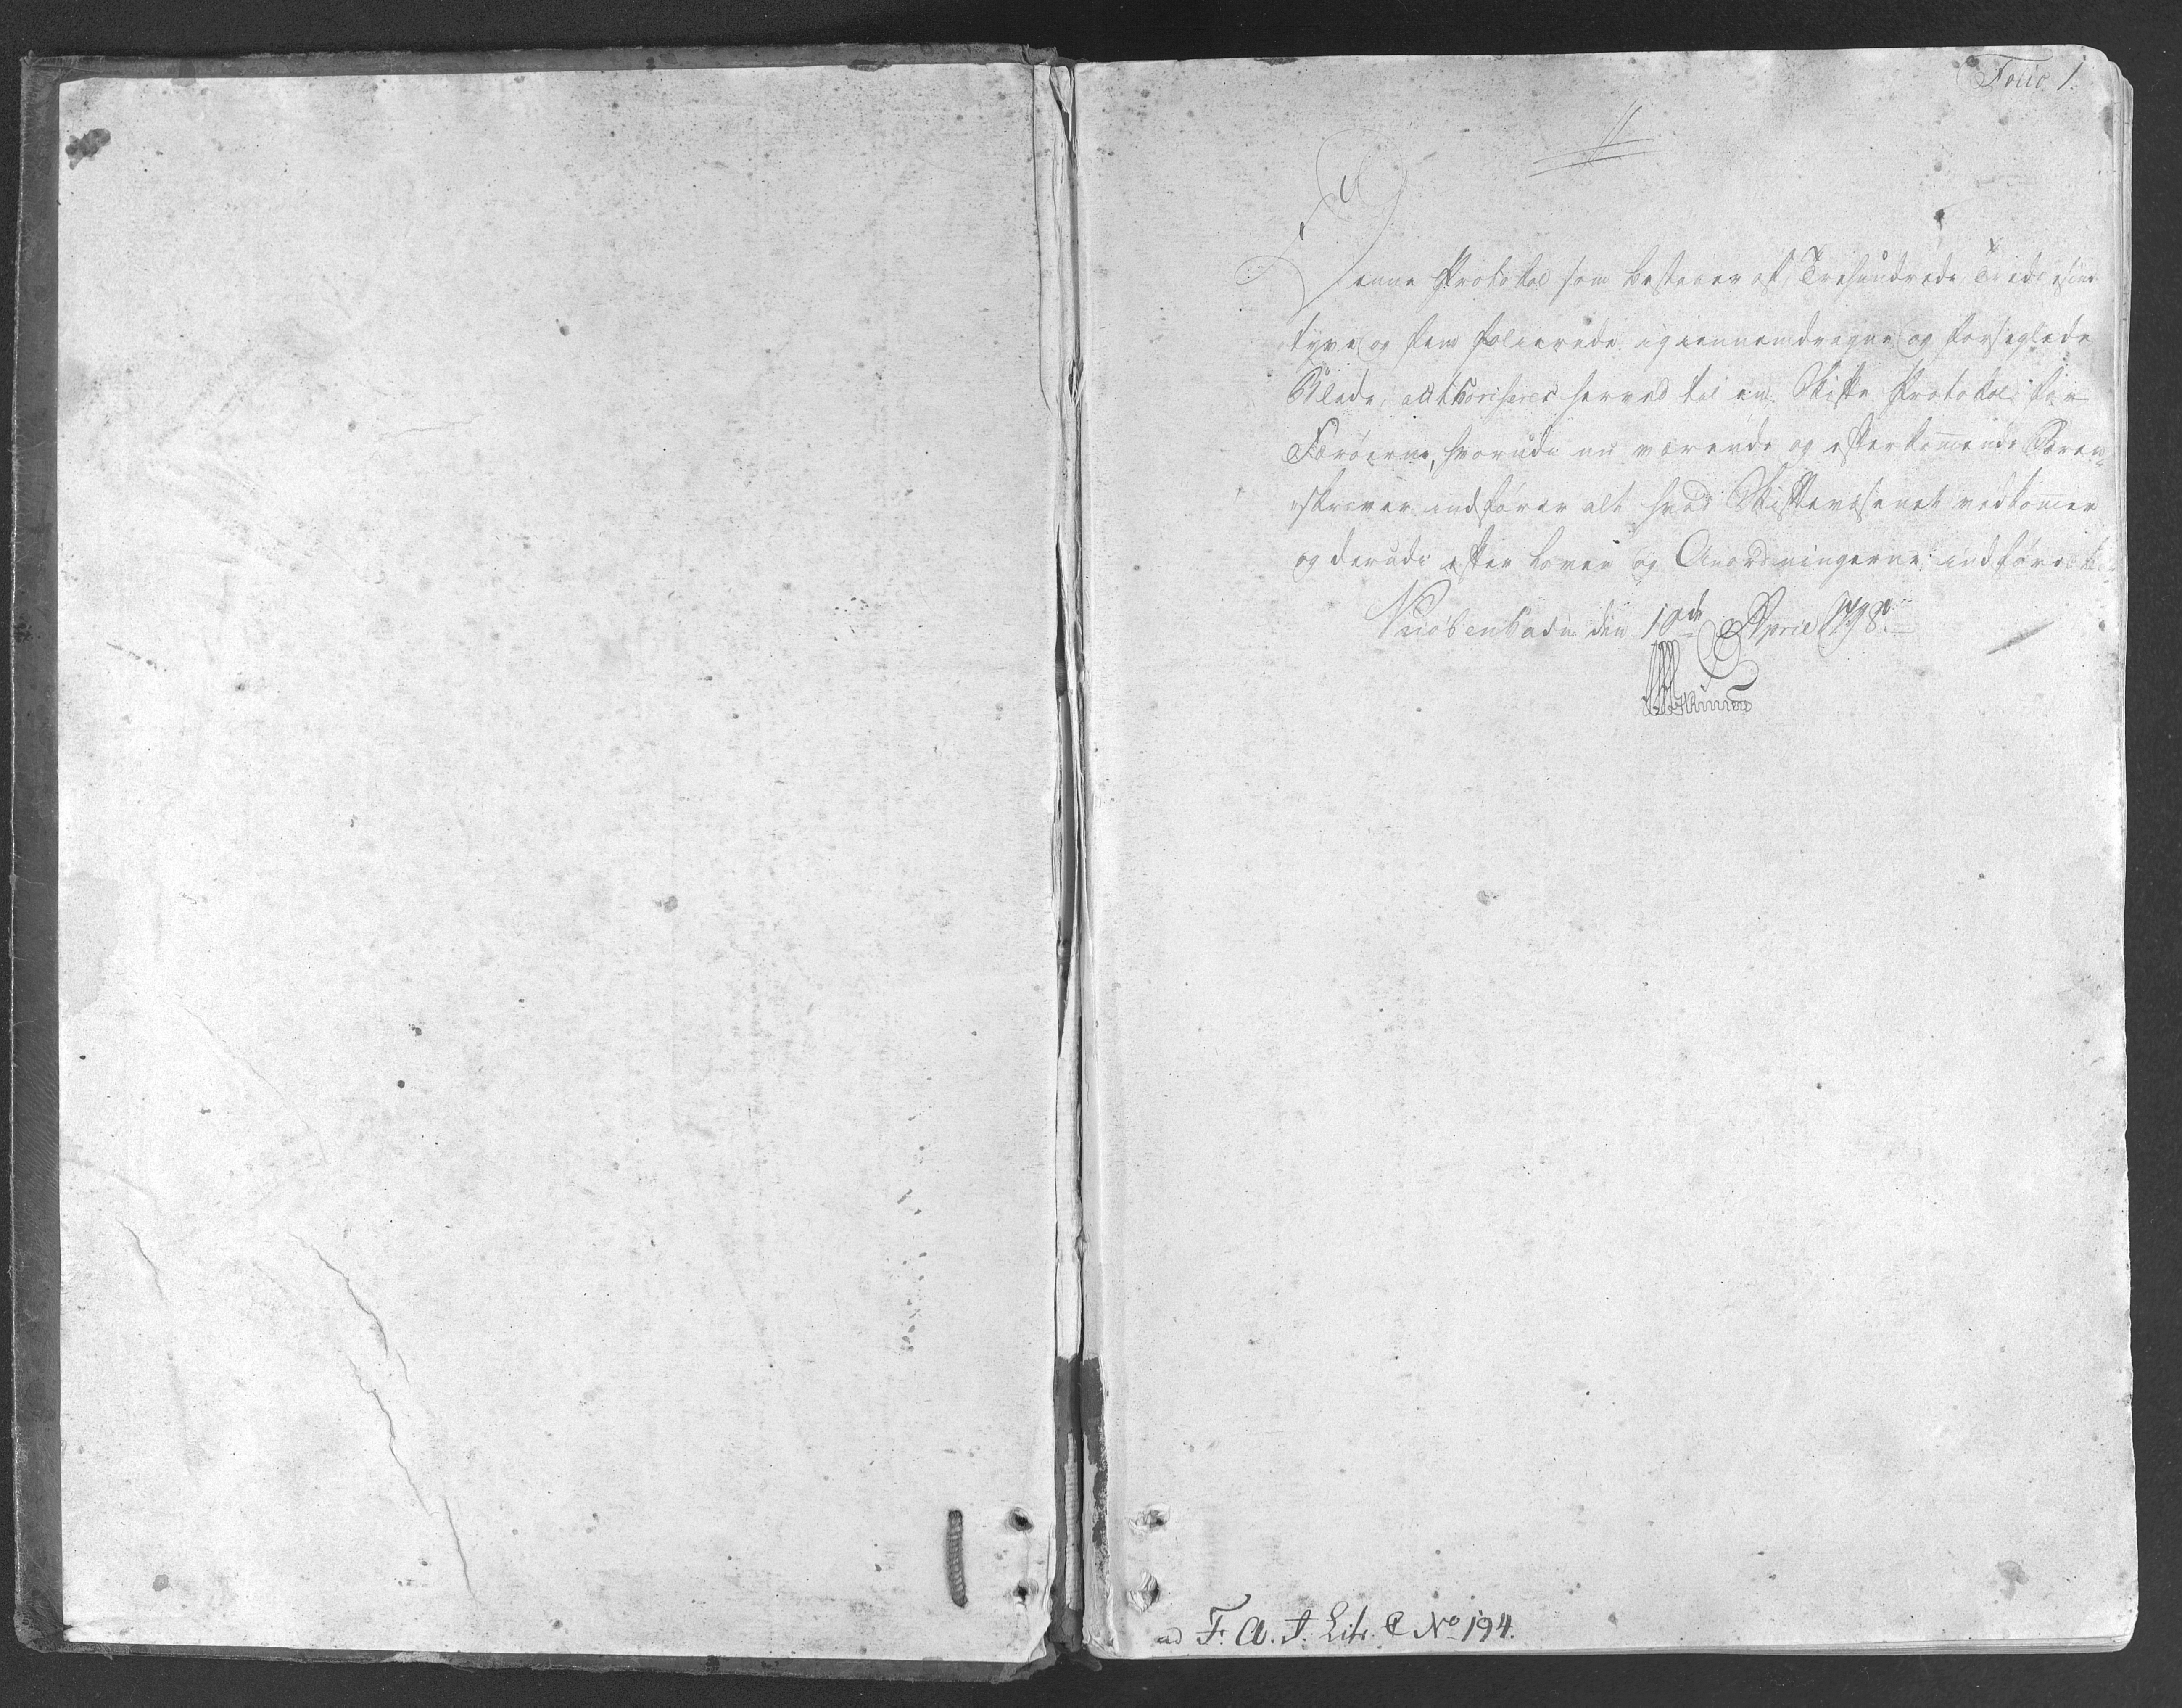 Folio 1.
Denne Protokol som bestaaer af Trehundrede
tyve og fem folierede igiennemdragne og forseglede
Blade, authoriseres herved til en Skifte Protokol for
Færöerne, hvorudi nu værende og efterkom̅ende Soren-
skriver indförer alt hvad Skiftevæsenet vedkom̅er
og derudi efter Loven og Anordningerne indföres
Kiöbenhavn den 10de April 1798.
ad F. A. J. Litr. C No 194.